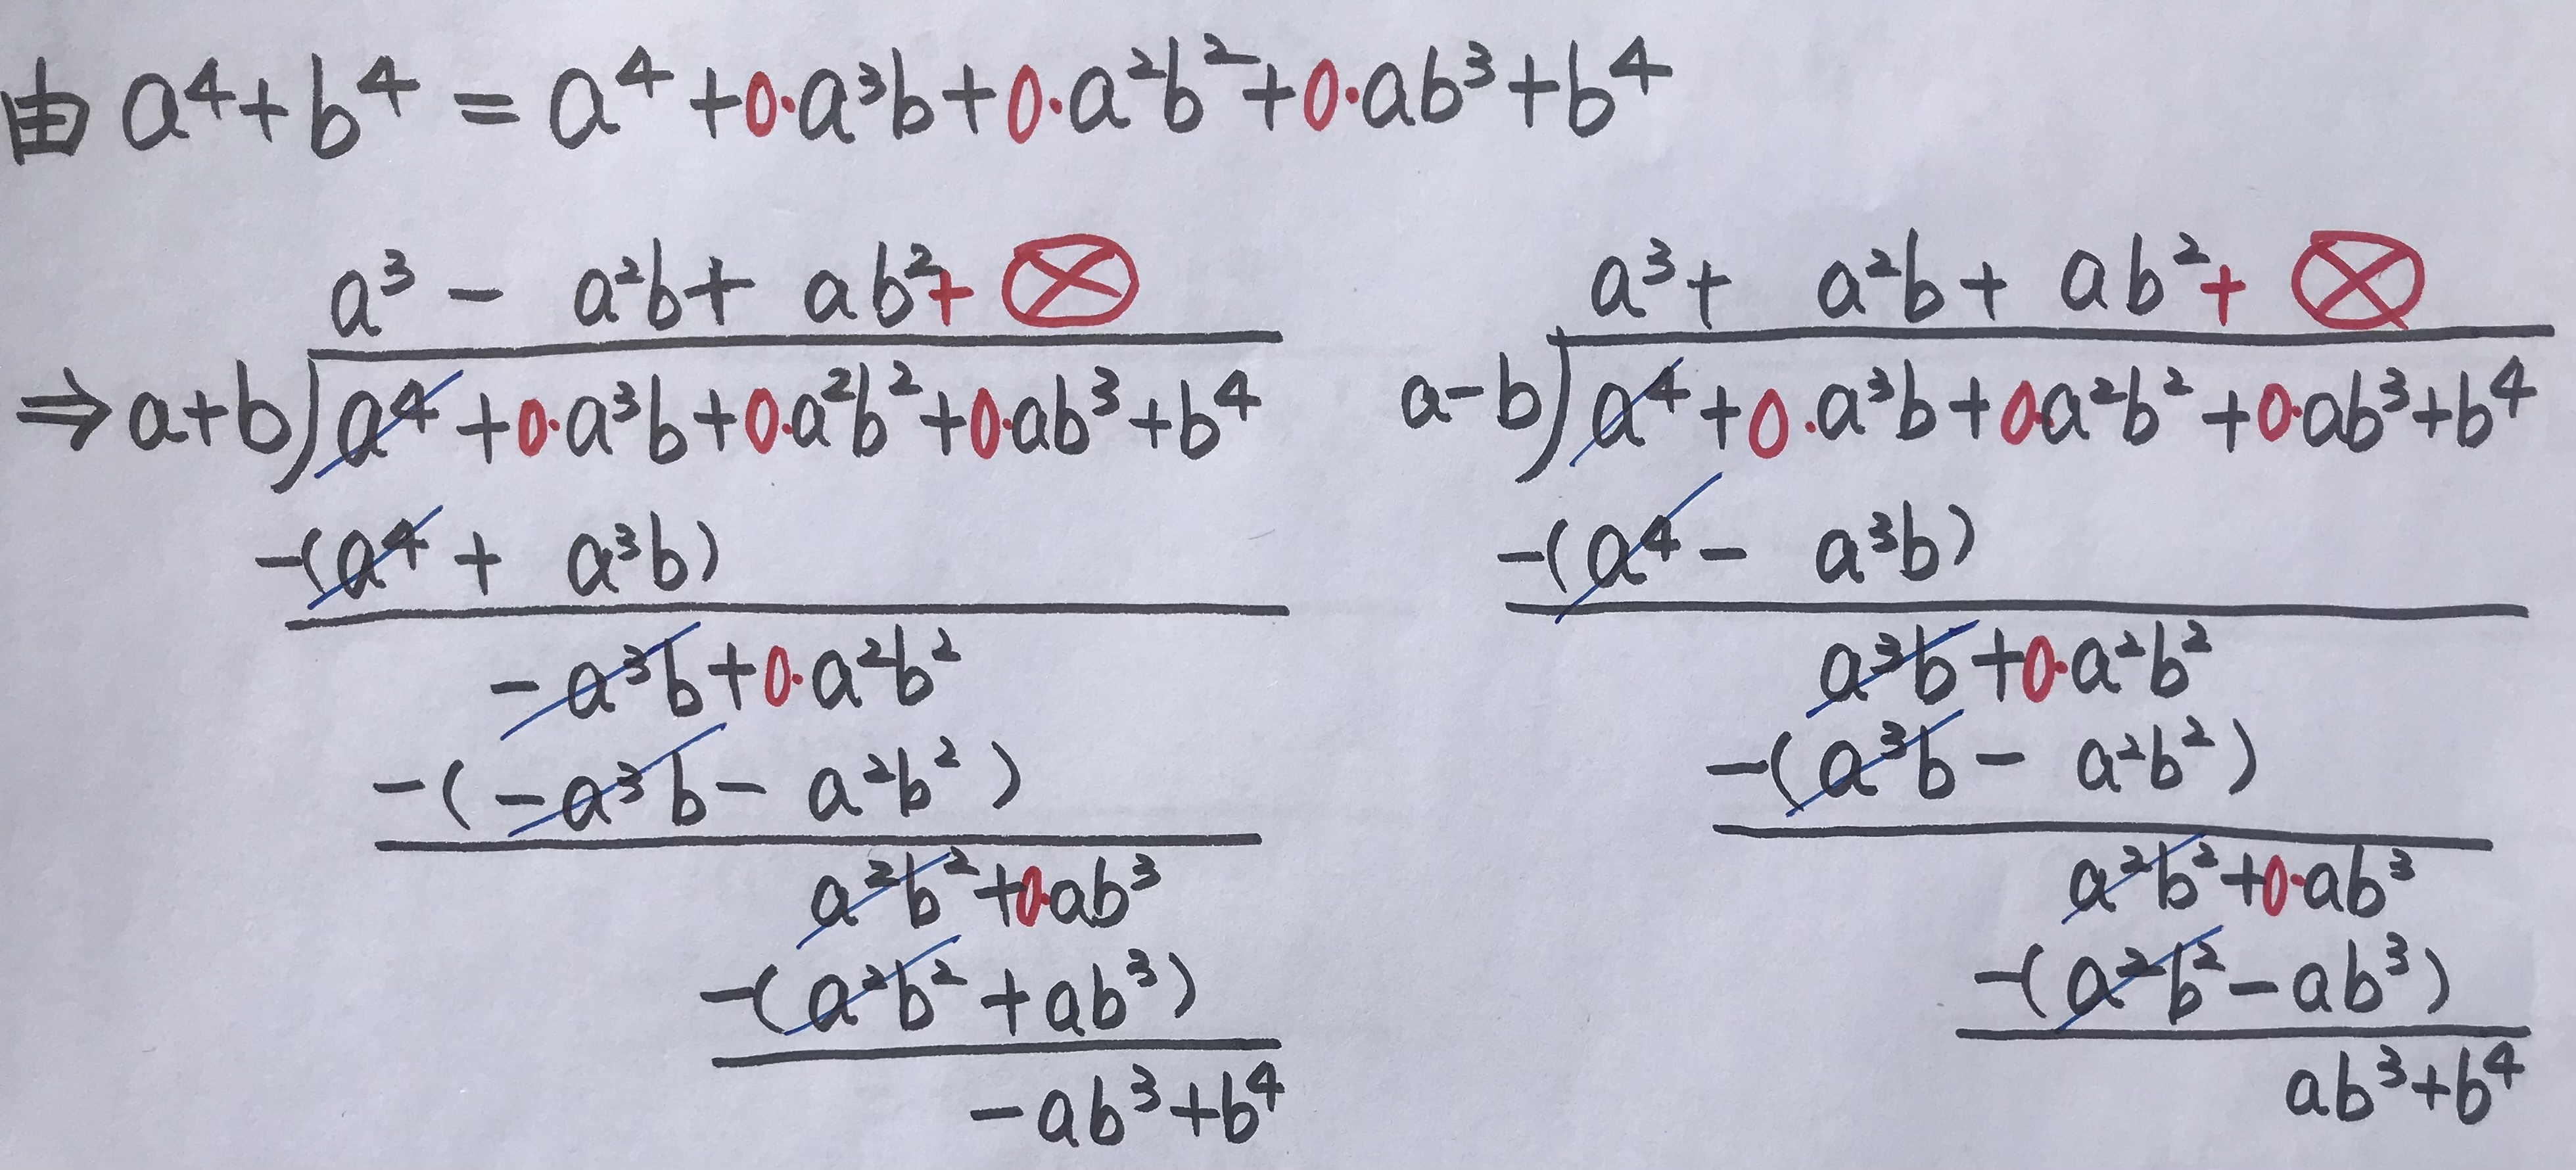 由 a⁴+b⁴ = a⁴+0·a³b+0·a²b²+0·ab³+b⁴
a³ - a²b + ab² + ⊗
⇒ a+b)a⁴+0·a³b+0·a²b²+0·ab³+b⁴
-(a⁴ + a³b)
-a³b+0·a²b²
-(-a³b - a²b²)
a²b²+0·ab³
-(a²b²+ab³)
-ab³+b⁴
a³ + a²b + ab² + ⊗
a-b)a⁴+0·a³b+0·a²b²+0·ab³+b⁴
-(a⁴ - a³b)
a³b+0·a²b²
-(a³b - a²b²)
a²b²+0·ab³
-(a²b²-ab³)
ab³+b⁴